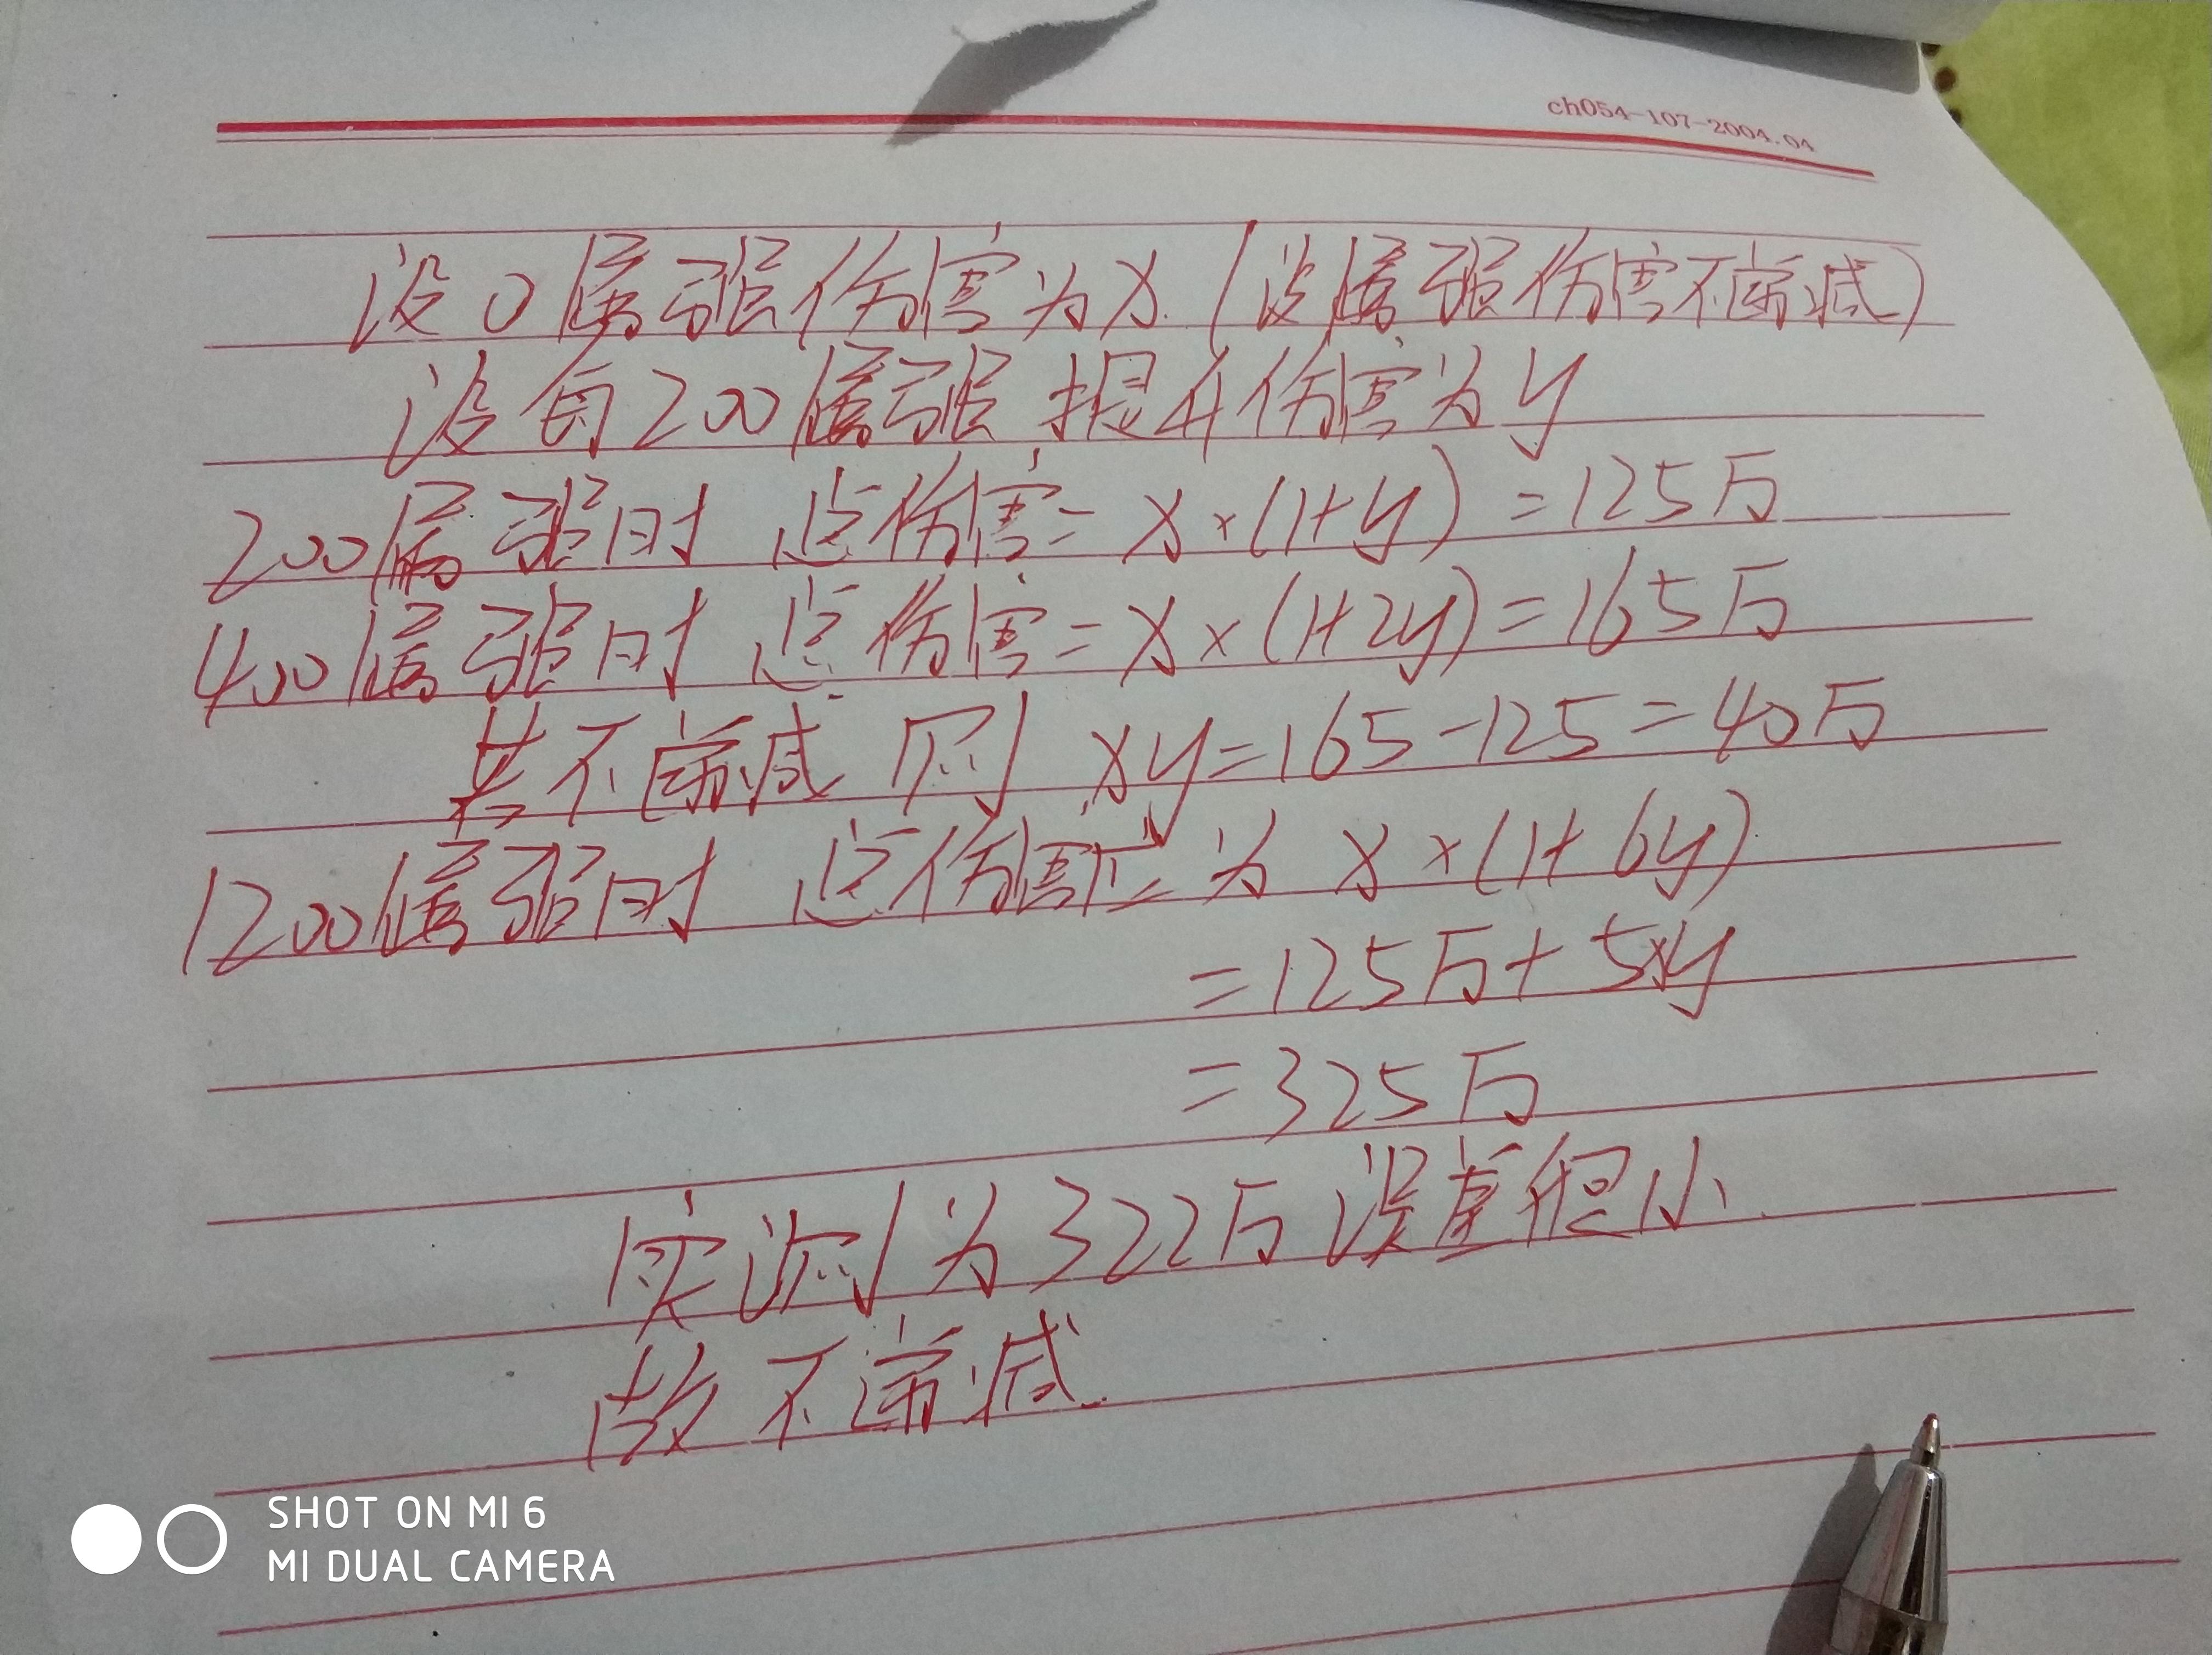 ch054-107-2004.04
设0属强伤害为x (设属强伤害不递减)
设每200属强提升伤害为y
200属强时 总伤害=x×(1+y)=125万
400属强时 总伤害=x×(1+2y)=165万
若不递减 则 xy=165-125=40万
1200属强时 总伤害应为 x×(1+6y)
=125万+5xy
=325万
实测为322万误差很小
故不递减
SHOT ON MI 6
MI DUAL CAMERA